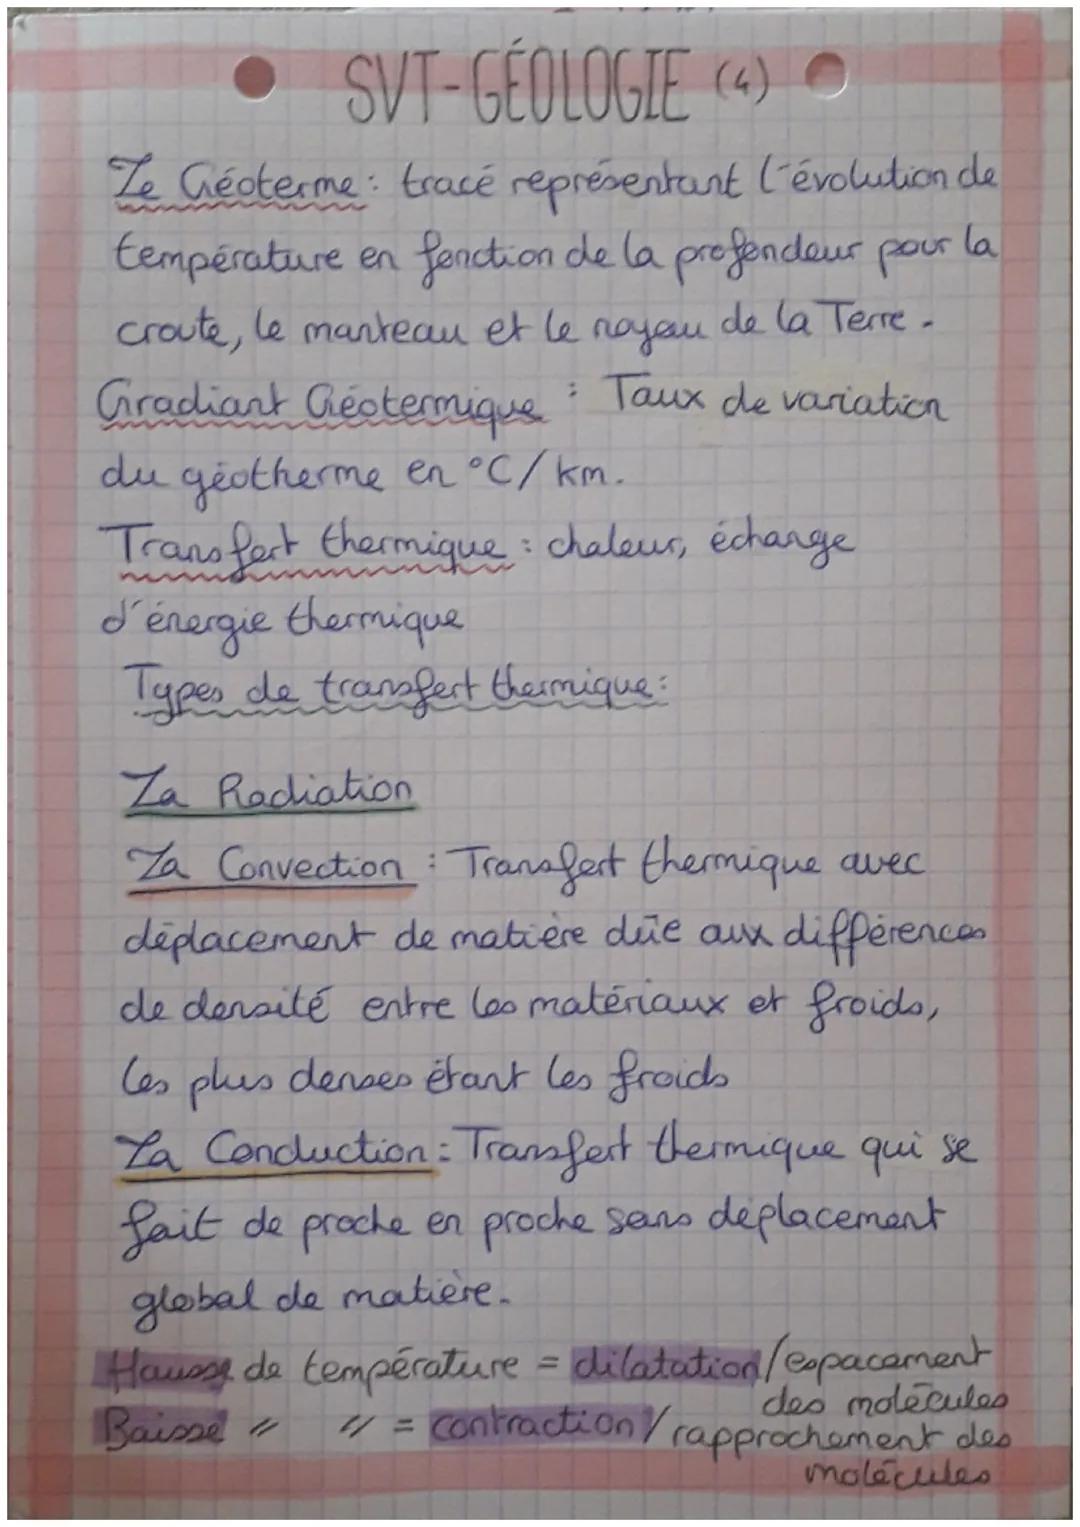 SVT-GÉOLOGIE (4)
Le Géoterme : tracé représentant l'évolution de
température en fonction de la profondeur pour la
croute, le manteau et le noyau de la Terre.
Gradiant Géotermique : Taux de variation
du géotherme en °C/km.
Transfert thermique : chaleur, échange
d'énergie thermique
Types de transfert thermique :
La Radiation
La Convection : Transfert thermique avec
déplacement de matière dûe aux différences
de densité entre les matériaux et froids,
les plus denses étant les froids
La Conduction : Transfert thermique qui se
fait de proche en proche sans déplacement
global de matière.
Hausse de température = dilatation/espacement
des molécules
Baisse " " = contraction/rapprochement des
molécules